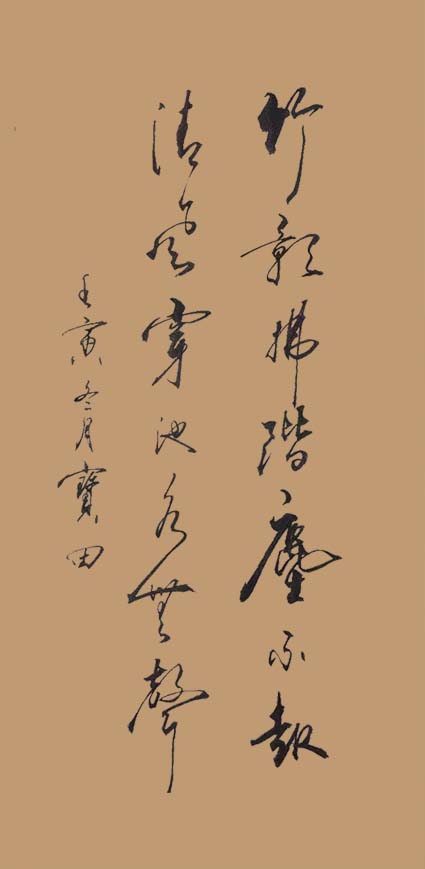 竹影拂階塵不起
清風穿池水無聲
壬寅冬月寶田